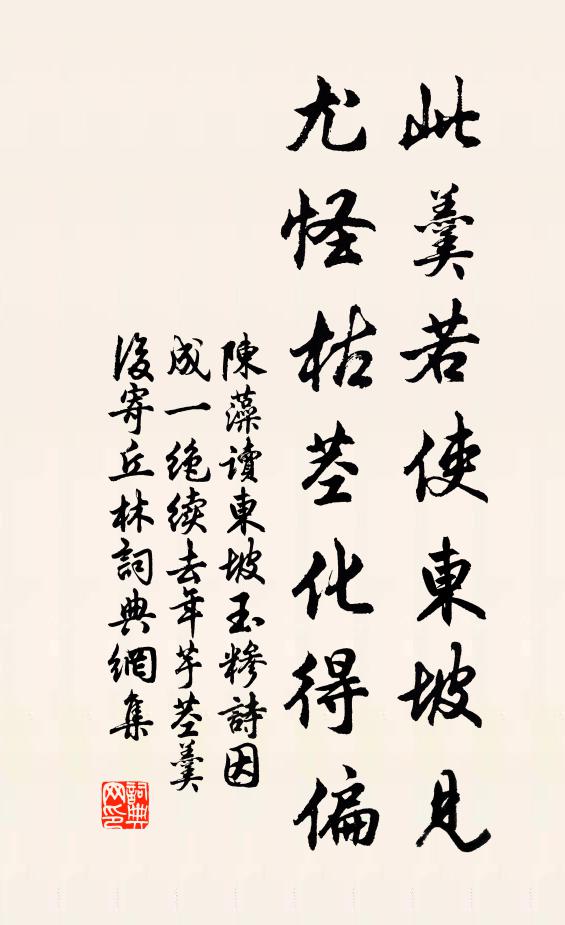 此羹若使東坡見
尤怪枯莖化得偏
陳藻讀東坡玉糝詩因
成一絶續去年芋莖羹
後寄丘林詞典網集
詞典网印